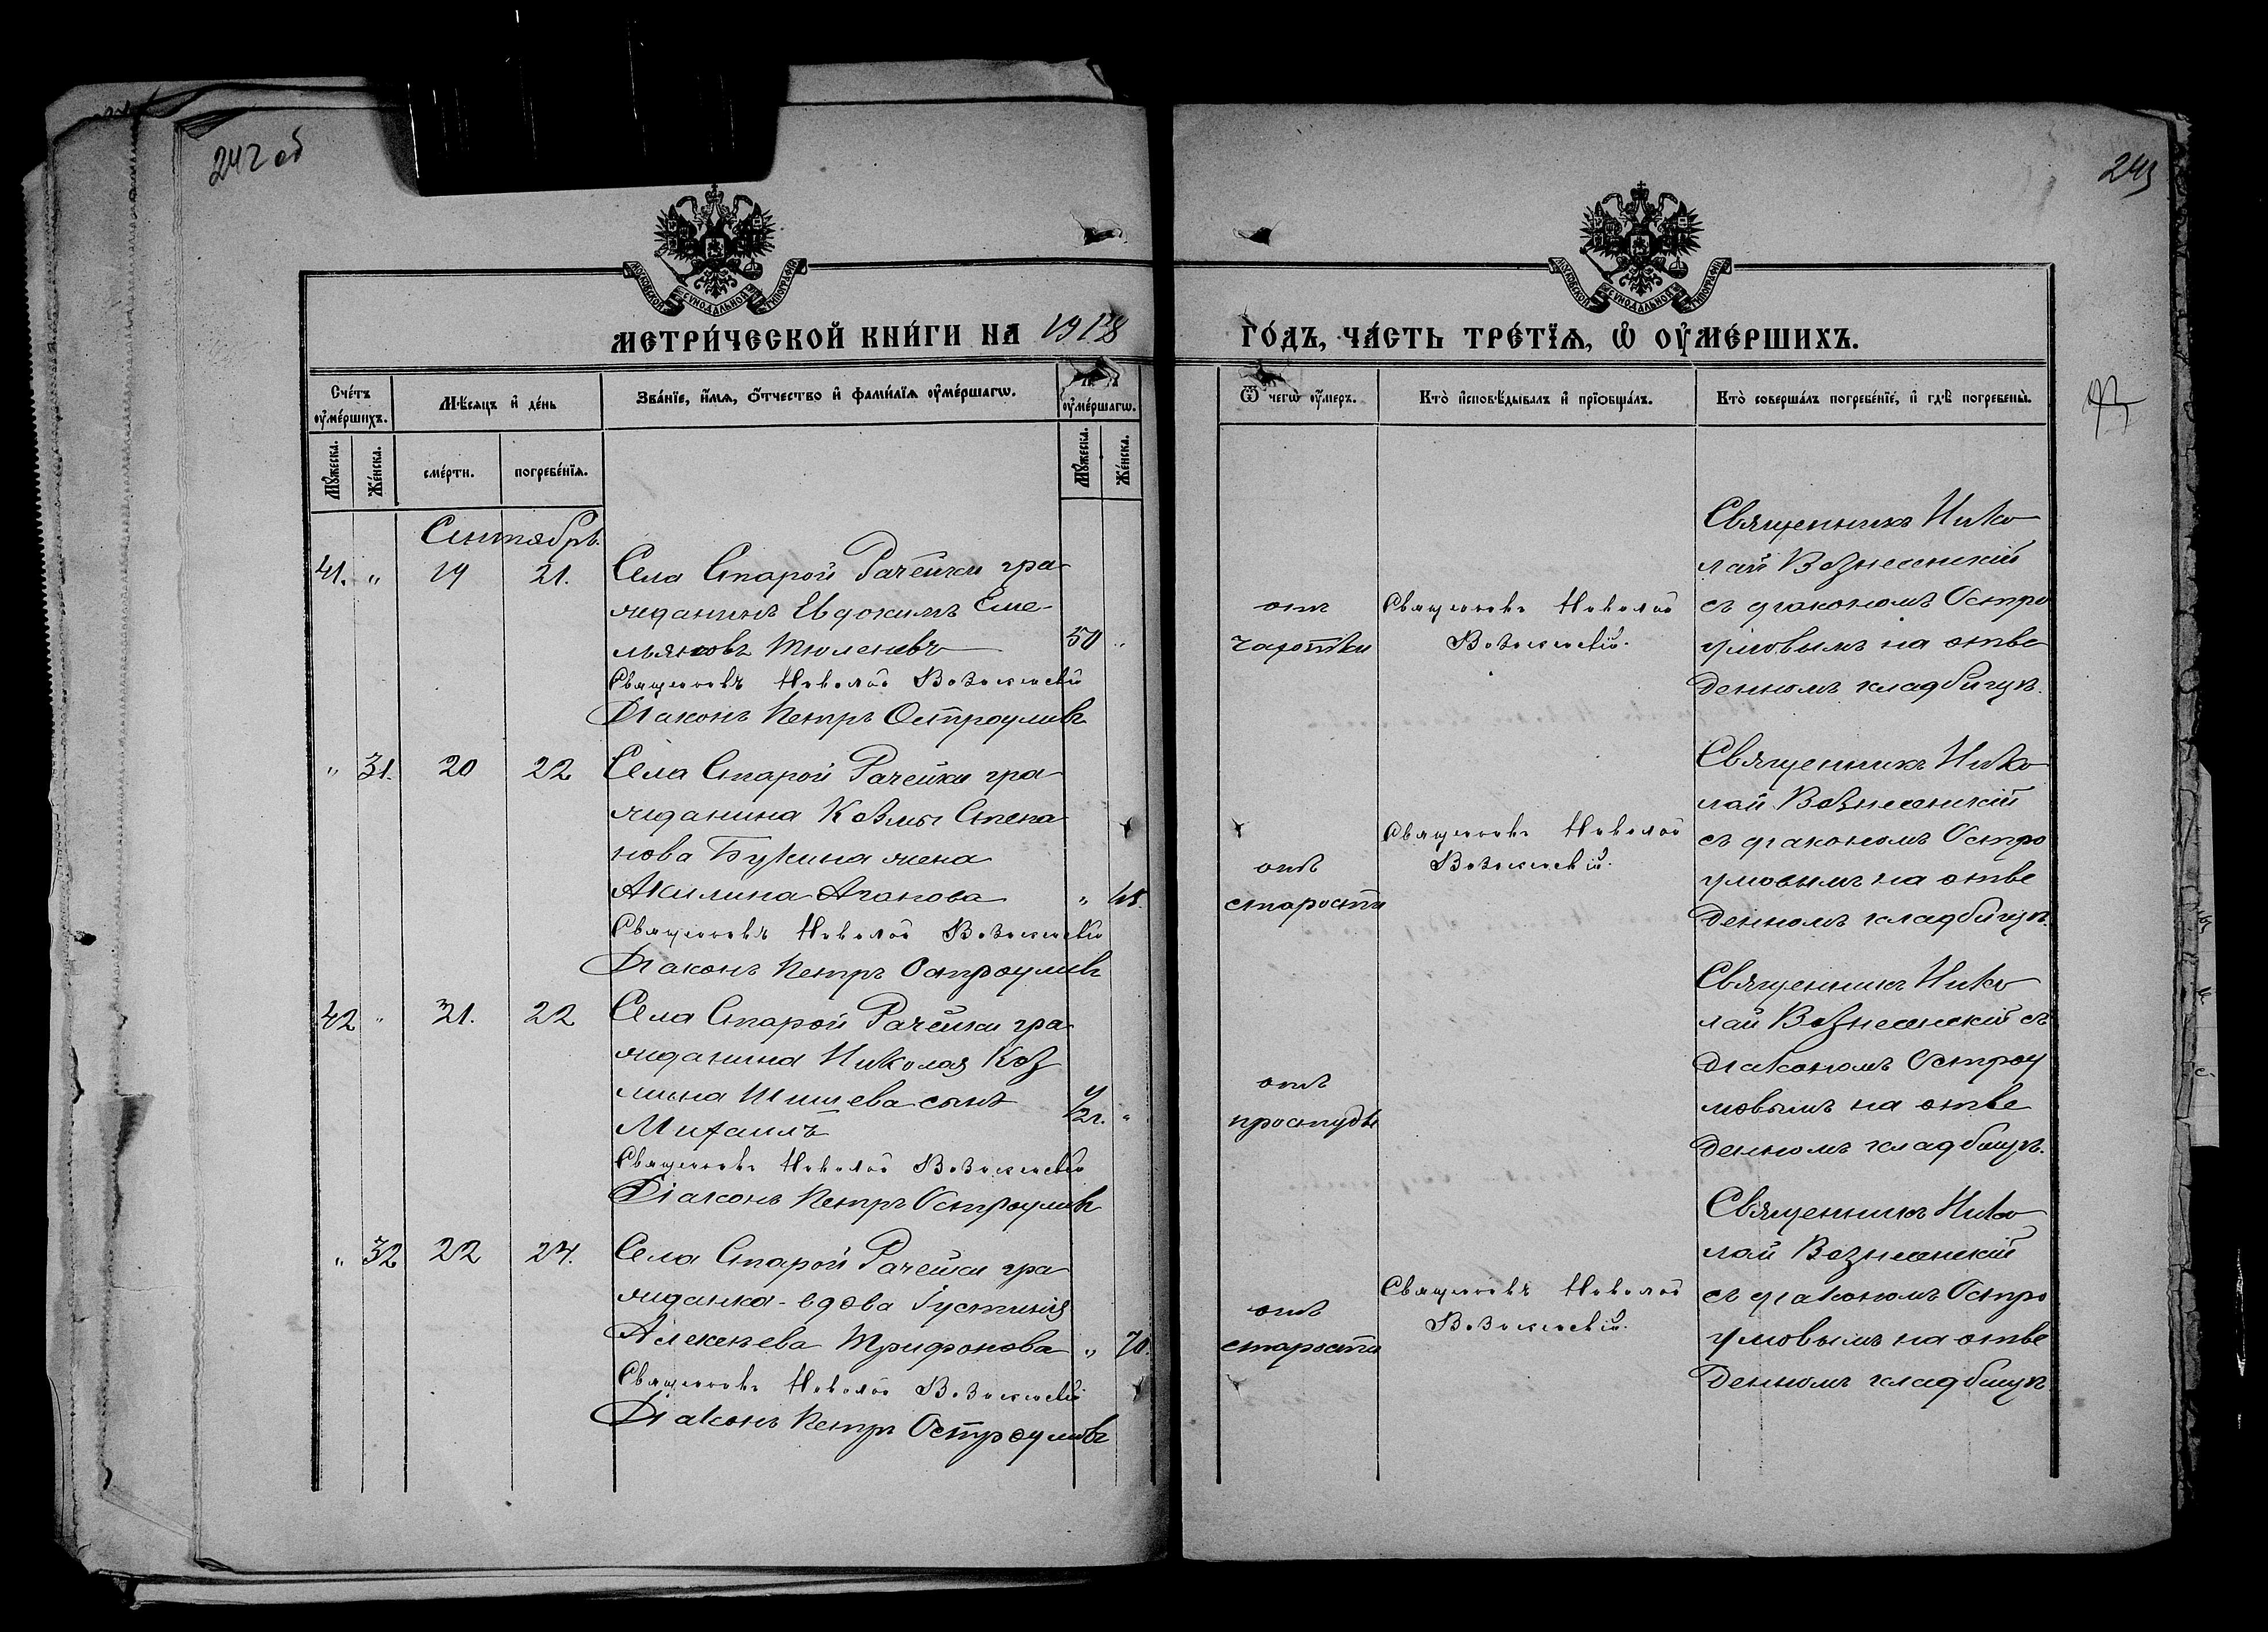 242 об
243
МОСКОВСКОЙ СѴНОДАЛЬНОЙ ТИПОГРАФІИ
МОСКОВСКОЙ СѴНОДАЛЬНОЙ ТИПОГРАФІИ
МЕТРИ́ЧЕСКОЙ КНИ́ГИ НА 1918 ГО́ДЪ, ЧА́СТЬ ТРЕ́ТЇѦ, Ѡ҆ ОУ҆МЕ́РШИХЪ.
Сче́тъ оу҆ме́ршихъ.
Мѣ́сяцъ и҆ де́нь
Зва́нїе, и҆́мѧ, ѻ҆́тчество и҆ фами́лїѧ оу҆ме́ршагѡ.
оу҆ме́ршагѡ.
Ѿ чегѡ̀ оу҆́меръ.
Кто̀ и҆сповѣ́дывалъ и҆ прїѡбща́лъ.
Кто̀ соверша́лъ погребе́нїе, и҆ гдѣ̀ погребены̀.
Мꙋ́жеска.
Же́нска.
сме́рти.
погребе́нїѧ.
Мꙋ́жеска.
Же́нска.
Сентябрь.
41. " 19 21. Села Старой Рачейки гра
жданинъ Евдокимъ Еме-
льяновъ Тюленевъ 50 "
Священникъ Николай Вознесенскій
Діаконъ Петръ Остроумовъ
отъ
чахотки
Священникъ Николай
Вознесенскій.
Священникъ Нико
лай Вознесенскій
съ діакономъ Остро
умовымъ на отве
денномъ кладбищѣ.
" 31. 20 22 Села Старой Рачейки гра
жданина Козмы Степа
нова Букина жена
Акилина Агапова "
Священникъ Николай Вознесенскій
Діаконъ Петръ Остроумовъ
отъ
старости
Священникъ Николай
Вознесенскій.
Священникъ Нико
лай Вознесенскій
съ діакономъ Остро
умовымъ на отве
денномъ кладбищѣ.
42 " 21. 22 Села Старой Рачейки гра
жданина Николая Коз
мина Шишева сынъ
Михаилъ 1/2 г. "
Священникъ Николай Вознесенскій
Діаконъ Петръ Остроумовъ
отъ
простуды
Священникъ Нико
лай Вознесенскій съ
діакономъ Остроу
мовымъ на отве
денномъ кладбищѣ.
" 32 22 24. Села Старой Рачейки гра
жданка-вдова Іустинія
Алексѣева Трифонова " 70.
Священникъ Николай Вознесенскій
Діаконъ Петръ Остроумовъ
отъ
старости
Священникъ Николай
Вознесенскій.
Священникъ Нико
лай Вознесенскій
съ діакономъ Остро
умовымъ на отве
денномъ кладбищѣ